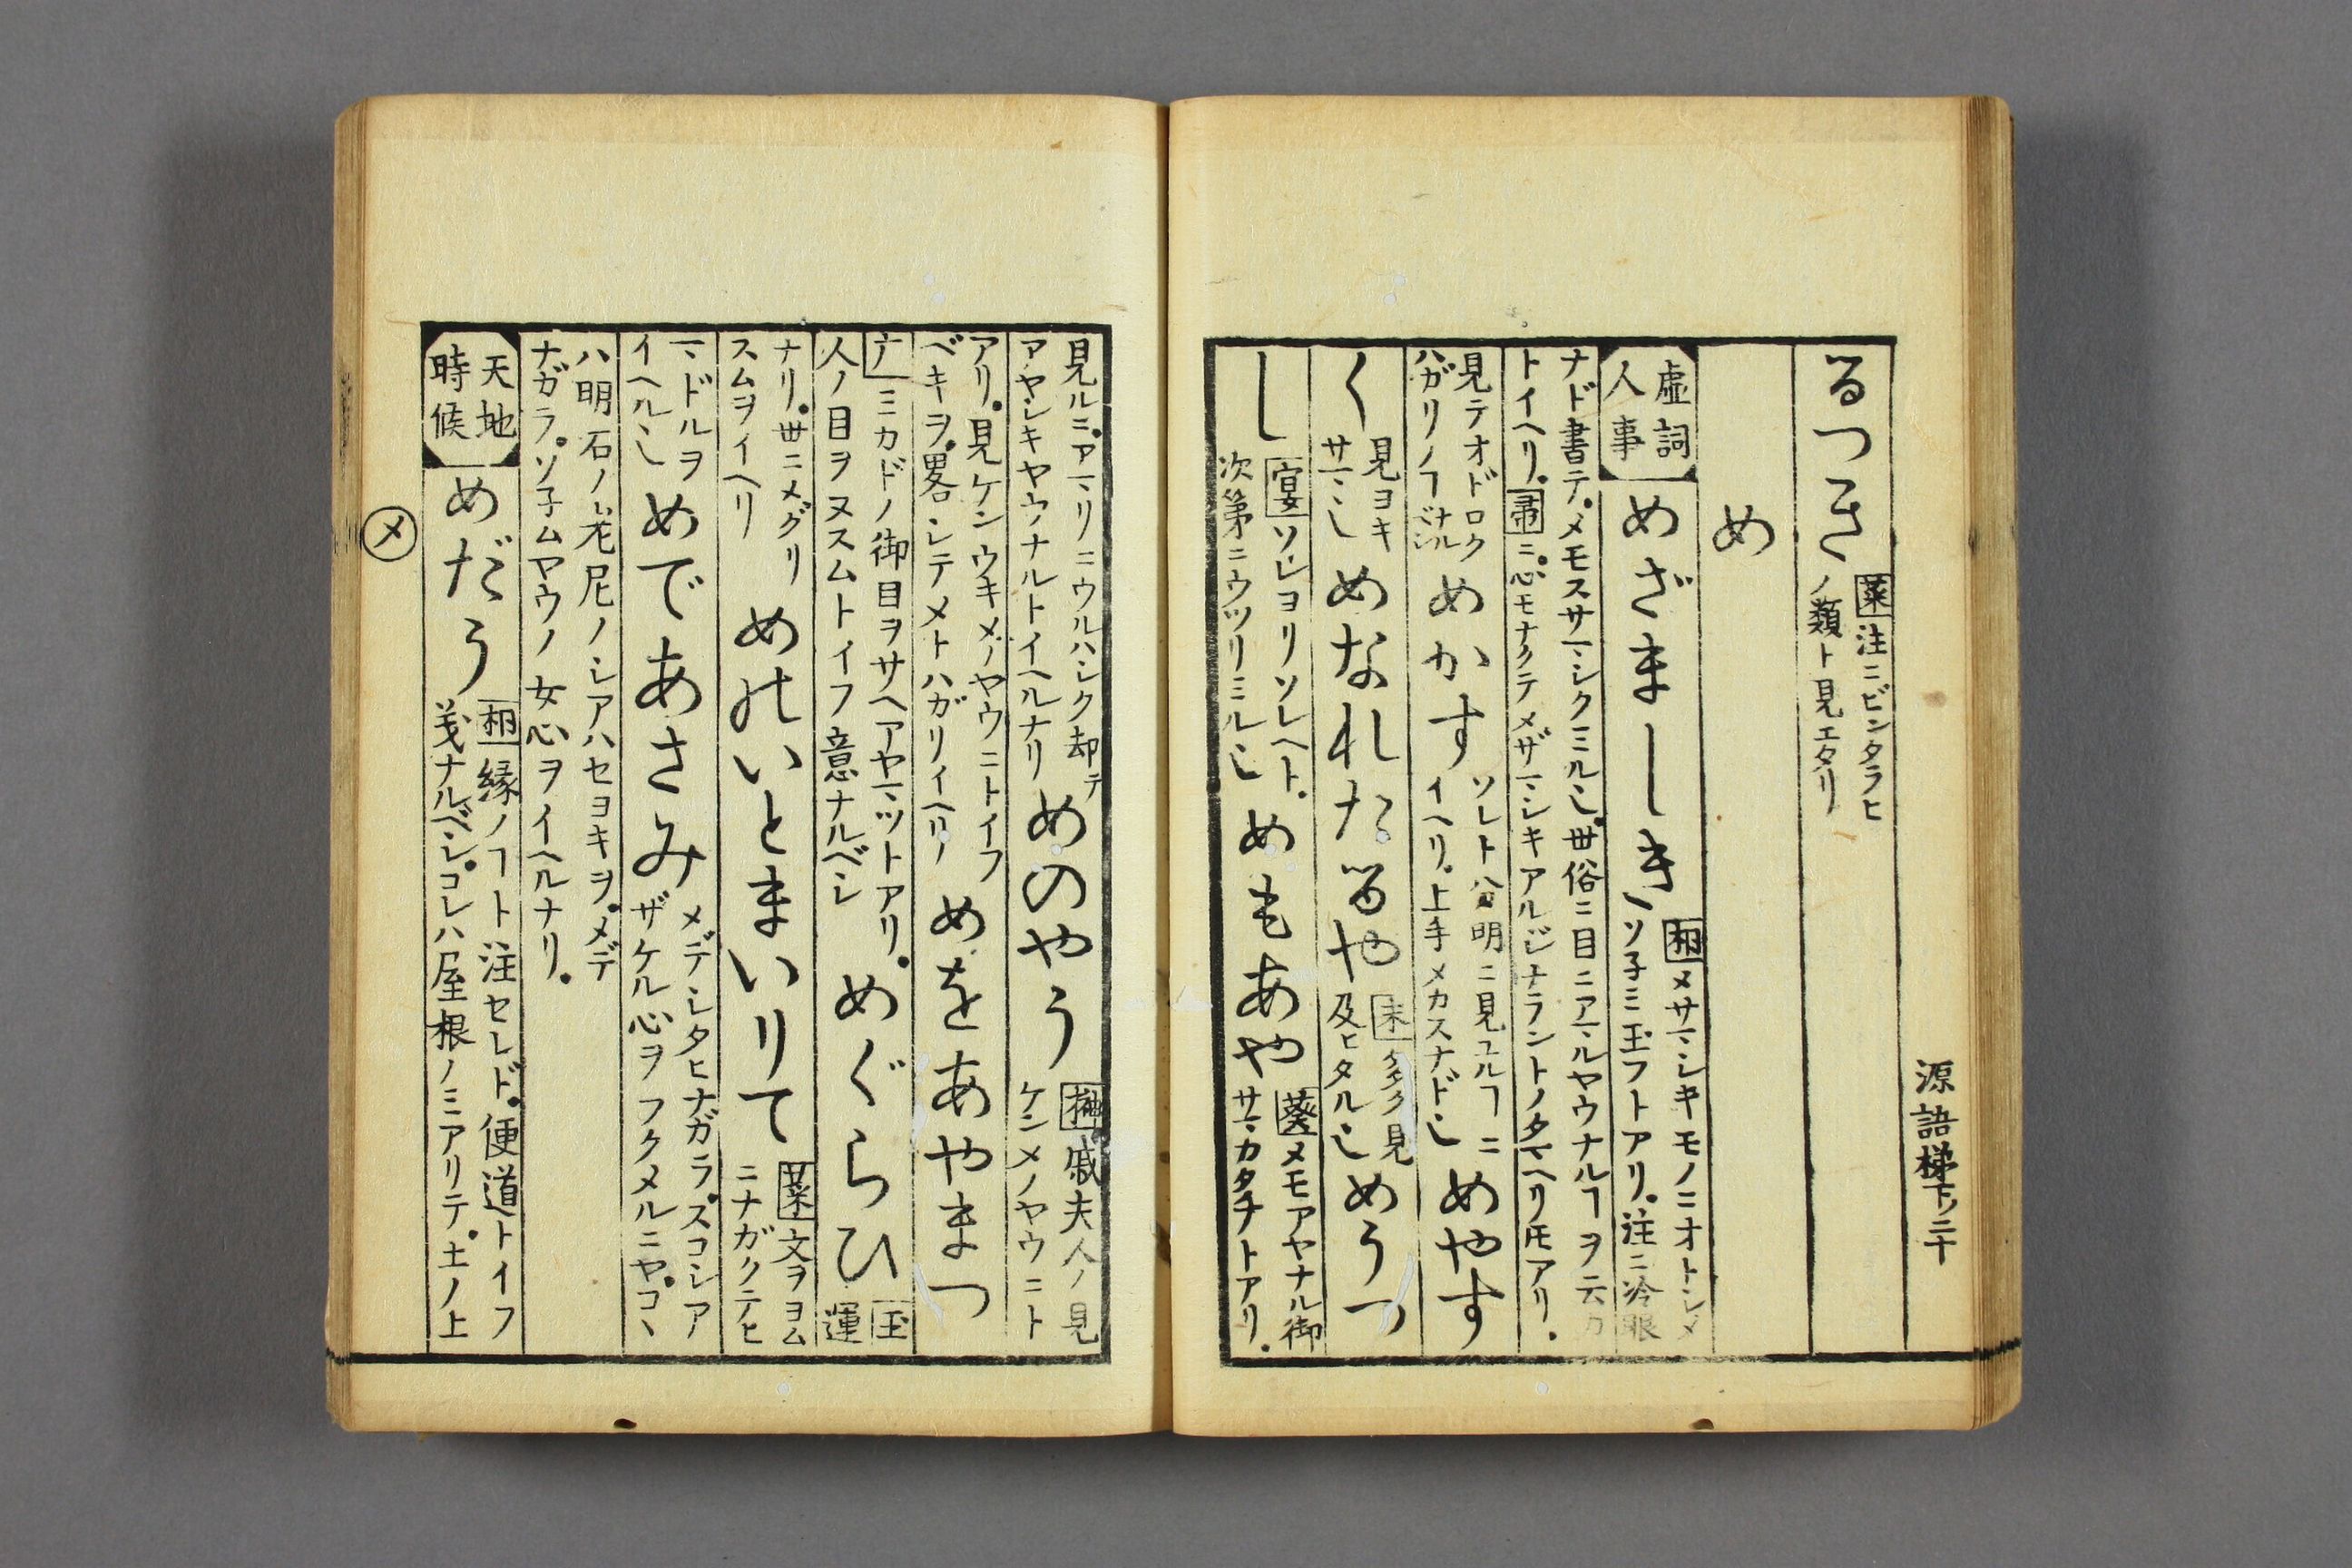 源語梯下ノ二十
るつき
菜 注ニビンタラヒ
ノ類ト見エタリ
め
虚詞
人事
めざましき
桐 メサマシキモノニオトシメ
ソ子ミ玉フトアリ。注ニ冷眼
ナド書テ。メモスサマシクミルヿ。世俗ニ目ニアマルヤウナルヿヲ云カ
トイヘリ。帚ニ。心モナクテメザマシキアルジナラントノタマヘリ𪜈アリ。
見テオドロク
ハガリノヿナルベシ
めかす
ソレト分明ニ見ユルヿニ
イヘリ。上手メカスナド也
めやす
く
見ヨキ
サマ也
めなれたるや
末 多ク見
及ヒタル也
めうつ
し
宴 ソレヨリソレヘト。
次第ニウツリミル也
めもあや
葵 メモアヤナル御
サマカタチトアリ。
見ルニ。アマリニウルハシク却テ
アヤシキヤウナルトイヘルナリ
めのやう
榊 戚夫人ノ見
ケンメノヤウニト
アリ。見ケンウキメノヤウニトイフ
ベキヲ。畧シテメトハガリイヘリ
めをあやまつ
ミカドノ御目ヲサヘアヤマツトアリ。
人ノ目ヲヌスムトイフ意ナルベシ
めぐらひ
玉
運
ナリ。世ニメグリ
スムヲイヘリ
めのいとまいりて
菜 文ヲヨム
ニナガクテヒ
マドルヲ
イヘル也
めであさみ
メデシタヒナガラ。スコシア
ザケル心ヲフクメルニヤ。コヽ
ハ明石ノ老尼ノシアハセヨキヲ。メデ
ナガラ。ソ子ムヤウノ女心ヲイヘルナリ。
天地
時候
めだう
桐 縁ノヿト注セレド。便道トイフ
義ナルベシ。コレハ屋根ノミアリテ。土ノ上
メ